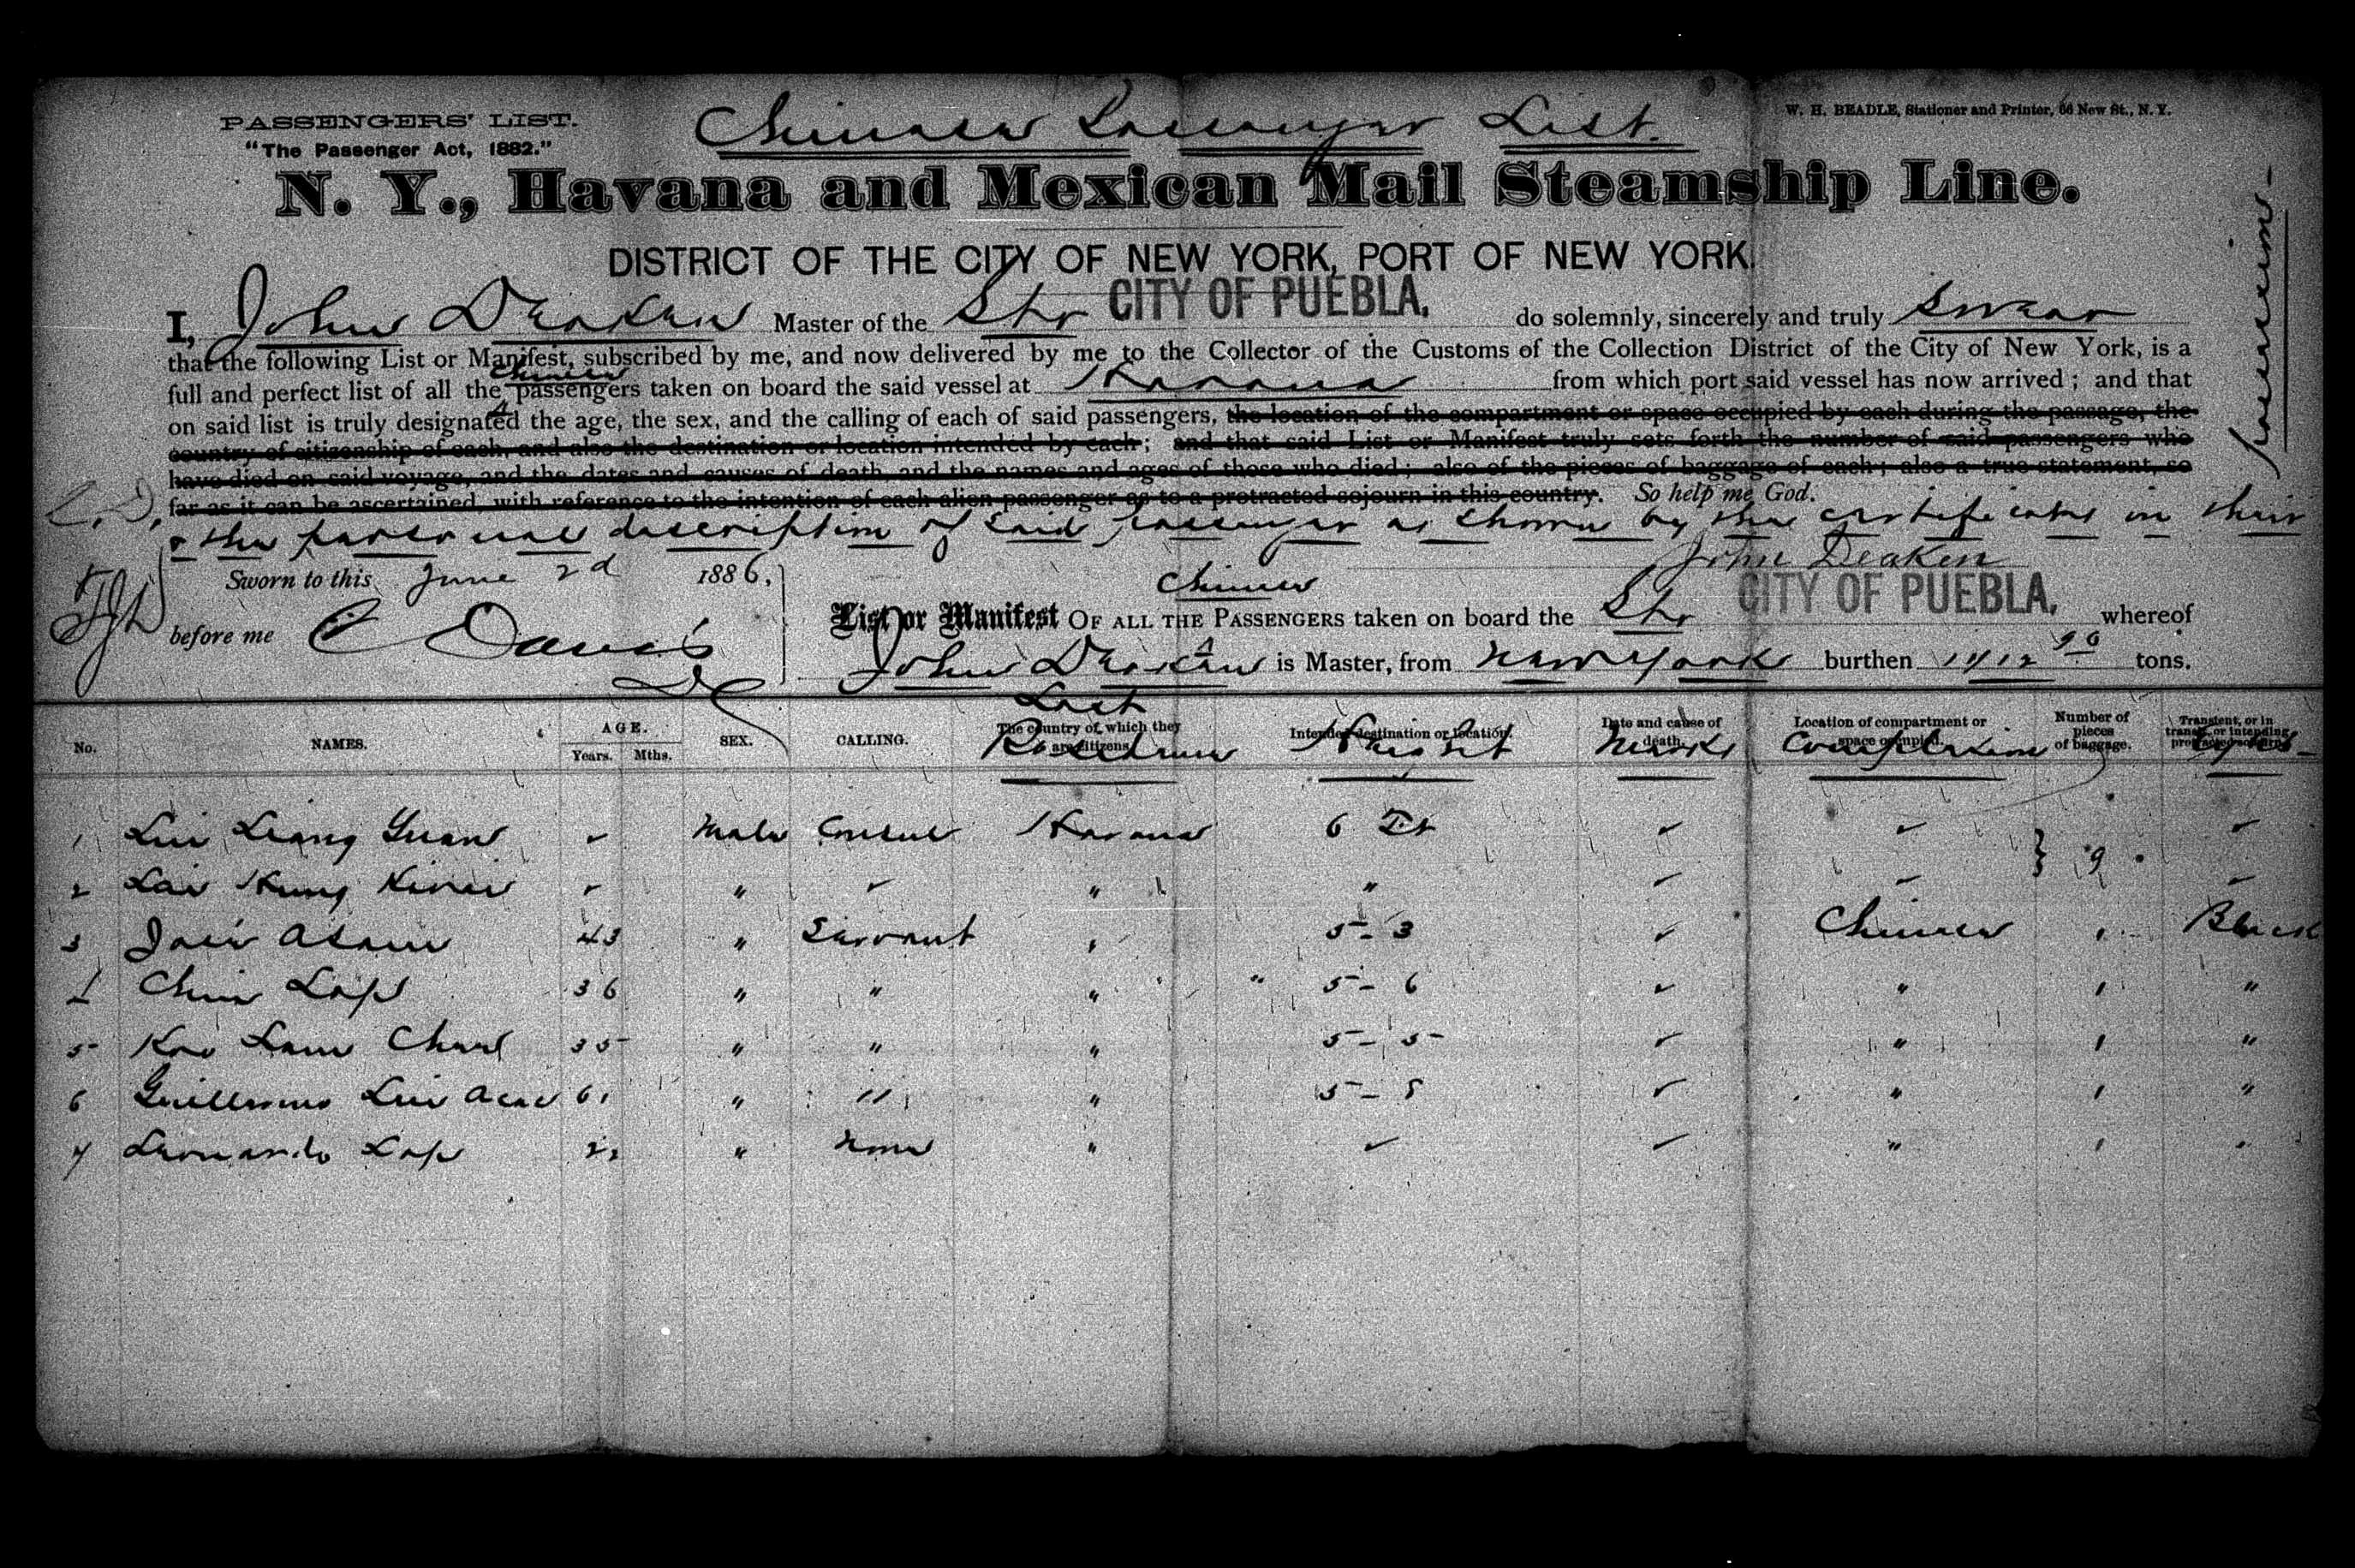 PASSENGERS' LIST.
"The Passenger Act, 1882."
Chinese Passenger List.
W. H. BEADLE, Stationer and Printer, 66 New St., N. Y.
N. Y., Havana and Mexican Mail Steamship Line.
DISTRICT OF THE CITY OF NEW YORK, PORT OF NEW YORK.
I, John Deaken Master of the Str CITY OF PUEBLA. do solemnly, sincerely and truly Swear
that the following List or Manifest, subscribed by me, and now delivered by me to the Collector of the Customs of the Collection District of the City of New York, is a
full and perfect list of all the Chinese passengers taken on board the said vessel at Havana from which port said vessel has now arrived; and that
on said list is truly designated the age, the sex, and the calling of each of said passengers, the location of the compartment or space occupied by each during the passage, the
country of citizenship of each, and also the destination or location intended by each; and that said List or Manifest truly sets forth the number of said passengers who
have died on said voyage, and the dates and causes of death, and the names and ages of those who died; also of the pieces of baggage of each; also a true statement, so
far as it can be ascertained, with reference to the intention of each alien passenger as to a protracted sojourn in this country. So help me God.
C.D. & the personal description of said passenger as shown by the certificates in their
possession
John Deaken
Sworn to this June 2d 1886,
before me C Davis
List or Manifest OF ALL THE Chinese PASSENGERS taken on board the Str CITY OF PUEBLA. whereof
John Deaken is Master, from New York burthen tons.
No. NAMES. AGE. Years. Mths. SEX. CALLING. The country of which they are citizens. Intended destination or location. Date and cause of death. Location of compartment or space occupied. Number of pieces of baggage. Transient, or in transit, or intending protracted sojourn.
Last Residence Height Marks Complexion Eyes
1 Lui Liang Yuan ✓ Male Consul Havana 6 Ft ✓ ✓ } 9 ✓
2 Lai Hung ✓ " ✓ " " ✓ ✓ ✓
3 José Asam 43 " Servant " 5-3 ✓ Chinese 1 Black
4 Chin Lap 36 " " " 5-6 ✓ " 1 "
5 Kao Lam Chan 35 " " " 5-5 ✓ " 1 "
6 Guillermo Lui 61 " " " 5-5 ✓ " 1 "
7 Leonardo Lap " None " ✓ ✓ " 1 "